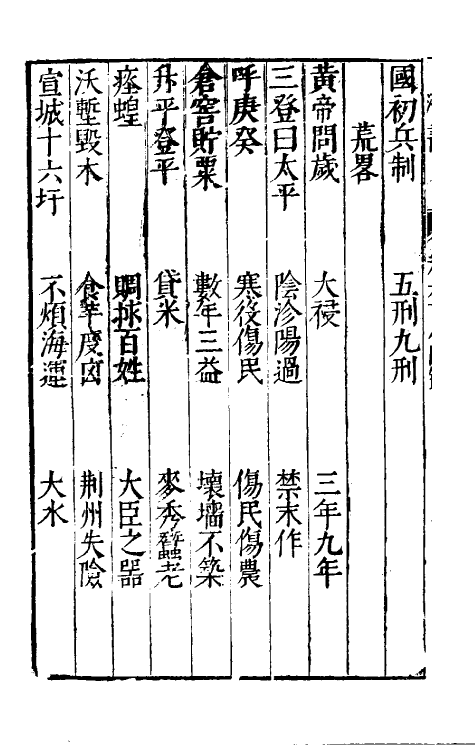 國初兵制 五刑九刑
荒畧
黃帝問歲 大祲 三年九年
三登曰太平 陰沴陽過 禁末作
呼庚癸 寒役傷民 傷民傷農
倉窖貯粟 數年三益 壞墻不築
升平登平 貸米 麥秀蠶老
瘞蝗 賙捄百姓 大臣之器
沃塹毀木 食莩度凶 荆州失險
宣城十六圩 不煩海運 大水